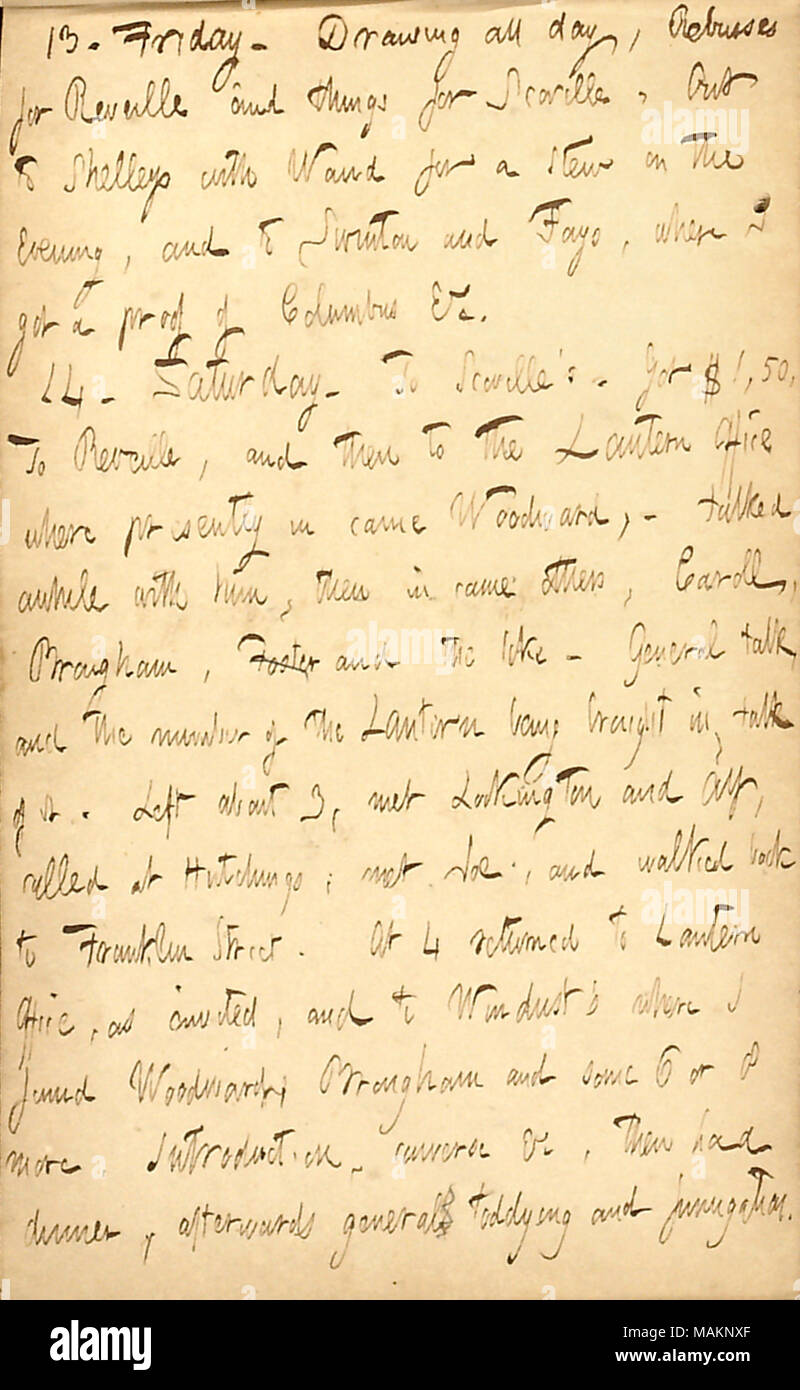 13. Friday. Drawing all day, Rebusses
for Reveille and things for Scoville. Out
to Shelleys with Waud for a stew in the
Evening, and to Swinton and Fays, where I
got a proof of Columbus &c.
14. Saturday. To Scoville's. Got $1,50,
To Reveille, and then to the Lantern Office
where presently in came Woodward, - talked
awhile with him, then in came others, Caroll,
Brougham, Foster and the like - General talk,
and the number of the Lantern being brought in, talk
of it. Left about 3, met Lockington and Alf,
called at Hutchings; met Joe, and walked back
to Franklin Street. At 4 returned to Lantern
Office, as invited, and to Windust's where I
found Woodward, Brougham and some 6 or 8
more. Introduction, converse &c, then had
dinner, afterwards general toddying and fumigation.
alamy
Image ID: MAKNXF
www.alamy.com